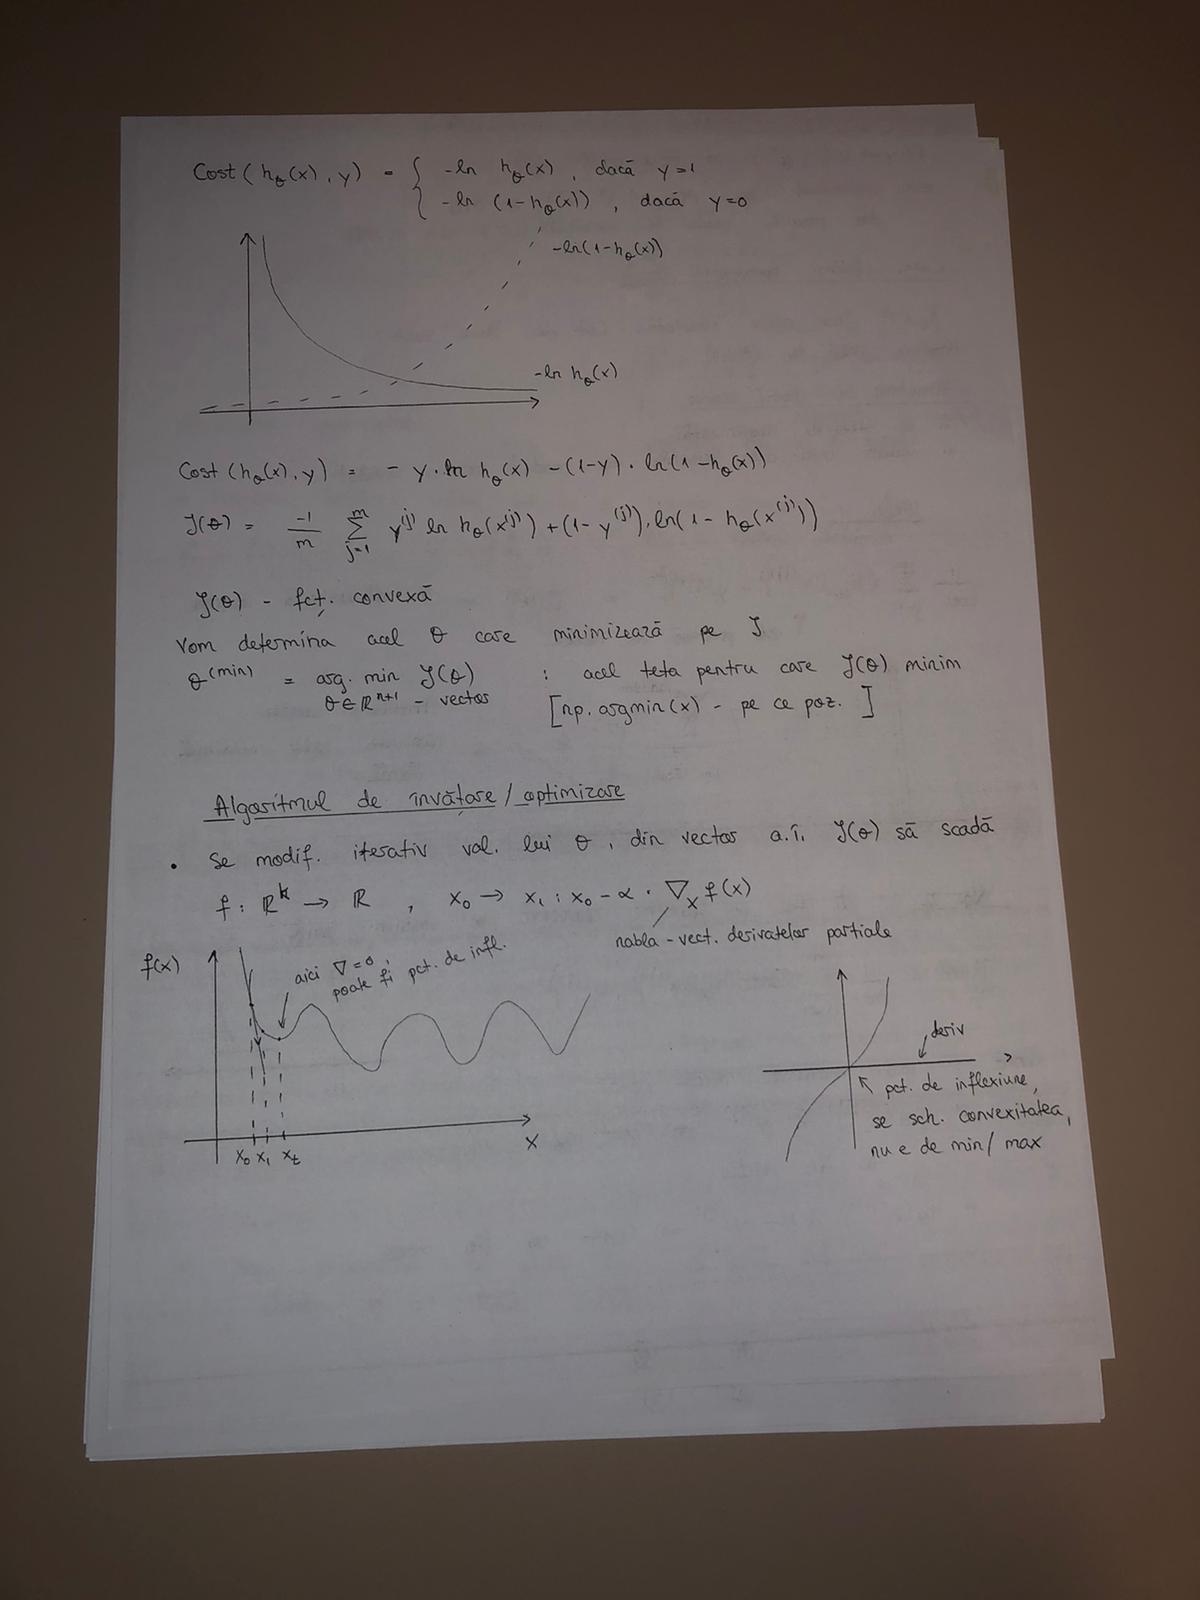 Cost(h_θ(x), y) = { -ln h_θ(x), dacă y=1
-ln (1-h_θ(x)), dacă y=0
-ln(1-h_θ(x))
-ln h_θ(x)
Cost(h_θ(x), y) = - y·ln h_θ(x) -(1-y)· ln(1-h_θ(x))
J(θ) = -1/m ∑_{j=1}^{m} y^(j) ln h_θ(x^(j)) + (1- y^(j))·ln(1 - h_θ(x^(j)))
J(θ) - fcț. convexă
Vom determina acel θ care minimizează pe J
θ^(min) = arg. min J(θ) : acel teta pentru care J(θ) minim
θ∈ℝ^{n+1} - vector [np.argmin(x) - pe ce poz. ]
Algoritmul de învățare / optimizare
• Se modif. iterativ val. lui θ, din vector a.î. J(θ) să scadă
f: ℝ^k → ℝ , x₀ → x₁ : x₀ - α · ∇_x f(x)
nabla - vect. derivatelor parțiale
f(x)
aici ∇=0,
poate fi pct. de infl.
x₀ x₁ x_t
x
deriv
pct. de inflexiune,
se sch. convexitatea,
nu e de min/ max